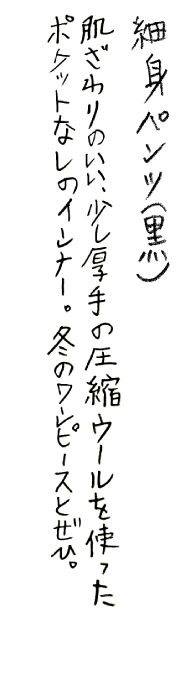 細身パンツ(黒)
肌ざわりのいい、少し厚手の圧縮ウールを使った
ポケットなしのインナー。冬のワンピースとぜひ。